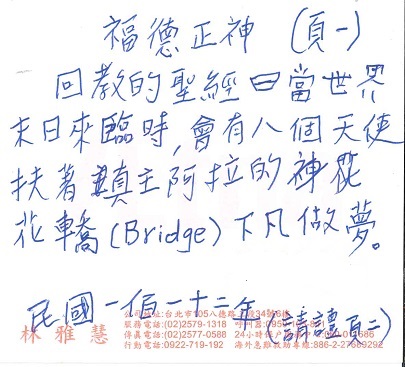 福德正神 (頁一)
回教的聖經曰當世界
末日來臨時,會有八個天使
扶著真主阿拉的神
花轎(Bridge)下凡做夢。
民國一佰一十二年(請禮頁二)
台北市105八德路
服務電話:(02)2579-1318
林雅慧 傳真電話:(02)2577-0588 24小時保戶
行動電話:0922-719-192 海外急難救助專線:886-2-